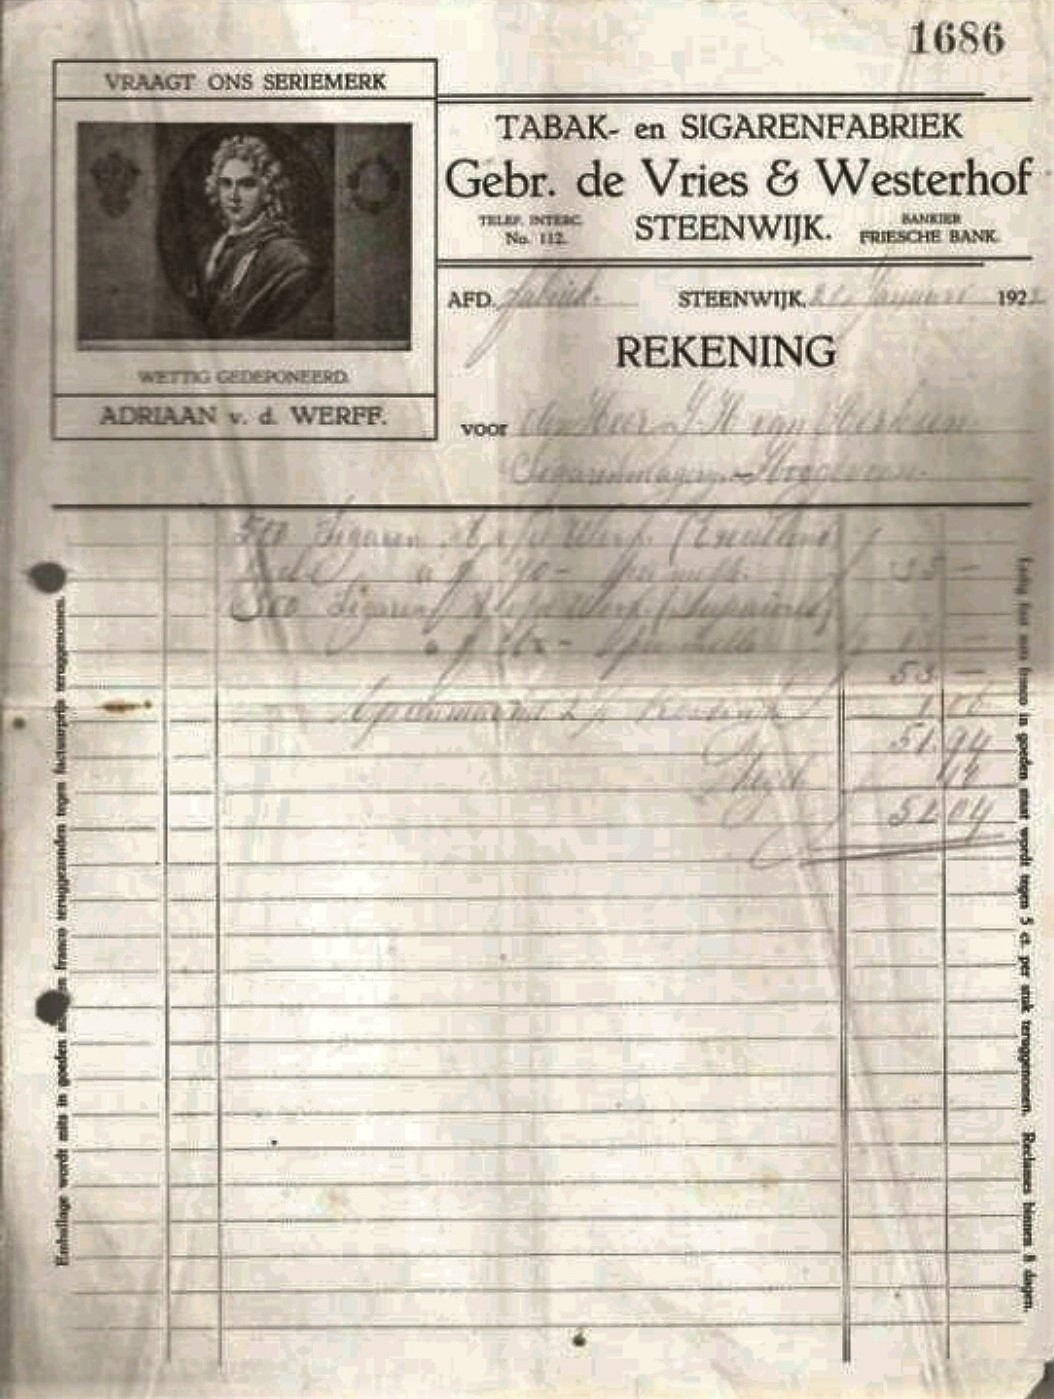 1686
VRAAGT ONS SERIEMERK
WETTIG GEDEPONEERD.
ADRIAAN v. d. WERFF.
TABAK- en SIGARENFABRIEK
Gebr. de Vries & Westerhof
TELEF. INTERC.
No. 112.
STEENWIJK.
BANKIER
FRIESCHE BANK.
AFD. fabriek. STEENWIJK, Januari 192
REKENING
voor den Heer J. H. van
Sigarenmagazijn Hoogeveen.
500 Sigaren v/d Werf.
35 —
500 Sigaren v/d Werf.
53 —
2% 1.06
51.94
51 04
Emballage wordt mits in goeden franco teruggezonden tegen factuurprijs teruggenomen.
Ledig fust mits franco in goeden staat wordt tegen 5 ct. per stuk teruggenomen. Reclames binnen 8 dagen.